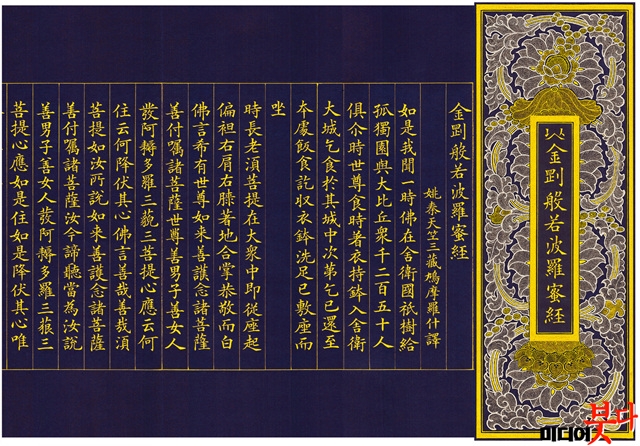 金剛般若波羅蜜經
金剛般若波羅蜜經
姚秦天竺三藏鳩摩羅什譯
如是我聞一時佛在舍衛國祇樹給
孤獨園與大比丘衆千二百五十人
俱尒時世尊食時著衣持鉢入舍衛
大城乞食於其城中次第乞已還至
本處飯食訖収衣鉢洗足已敷座而
坐
時長老湏菩提在大衆中即從座起
偏袒右肩右膝著地合掌恭敬而白
佛言希有世尊如来善護念諸菩薩
善付囑諸菩薩世尊善男子善女人
發阿耨多羅三藐三菩提心應云何
住云何降伏其心佛言善哉善哉湏
菩提如汝所說如来善護念諸菩薩
善付囑諸菩薩汝今諦聽當為汝說
善男子善女人發阿耨多羅三藐三
菩提心應如是住如是降伏其心唯
미디어붓다